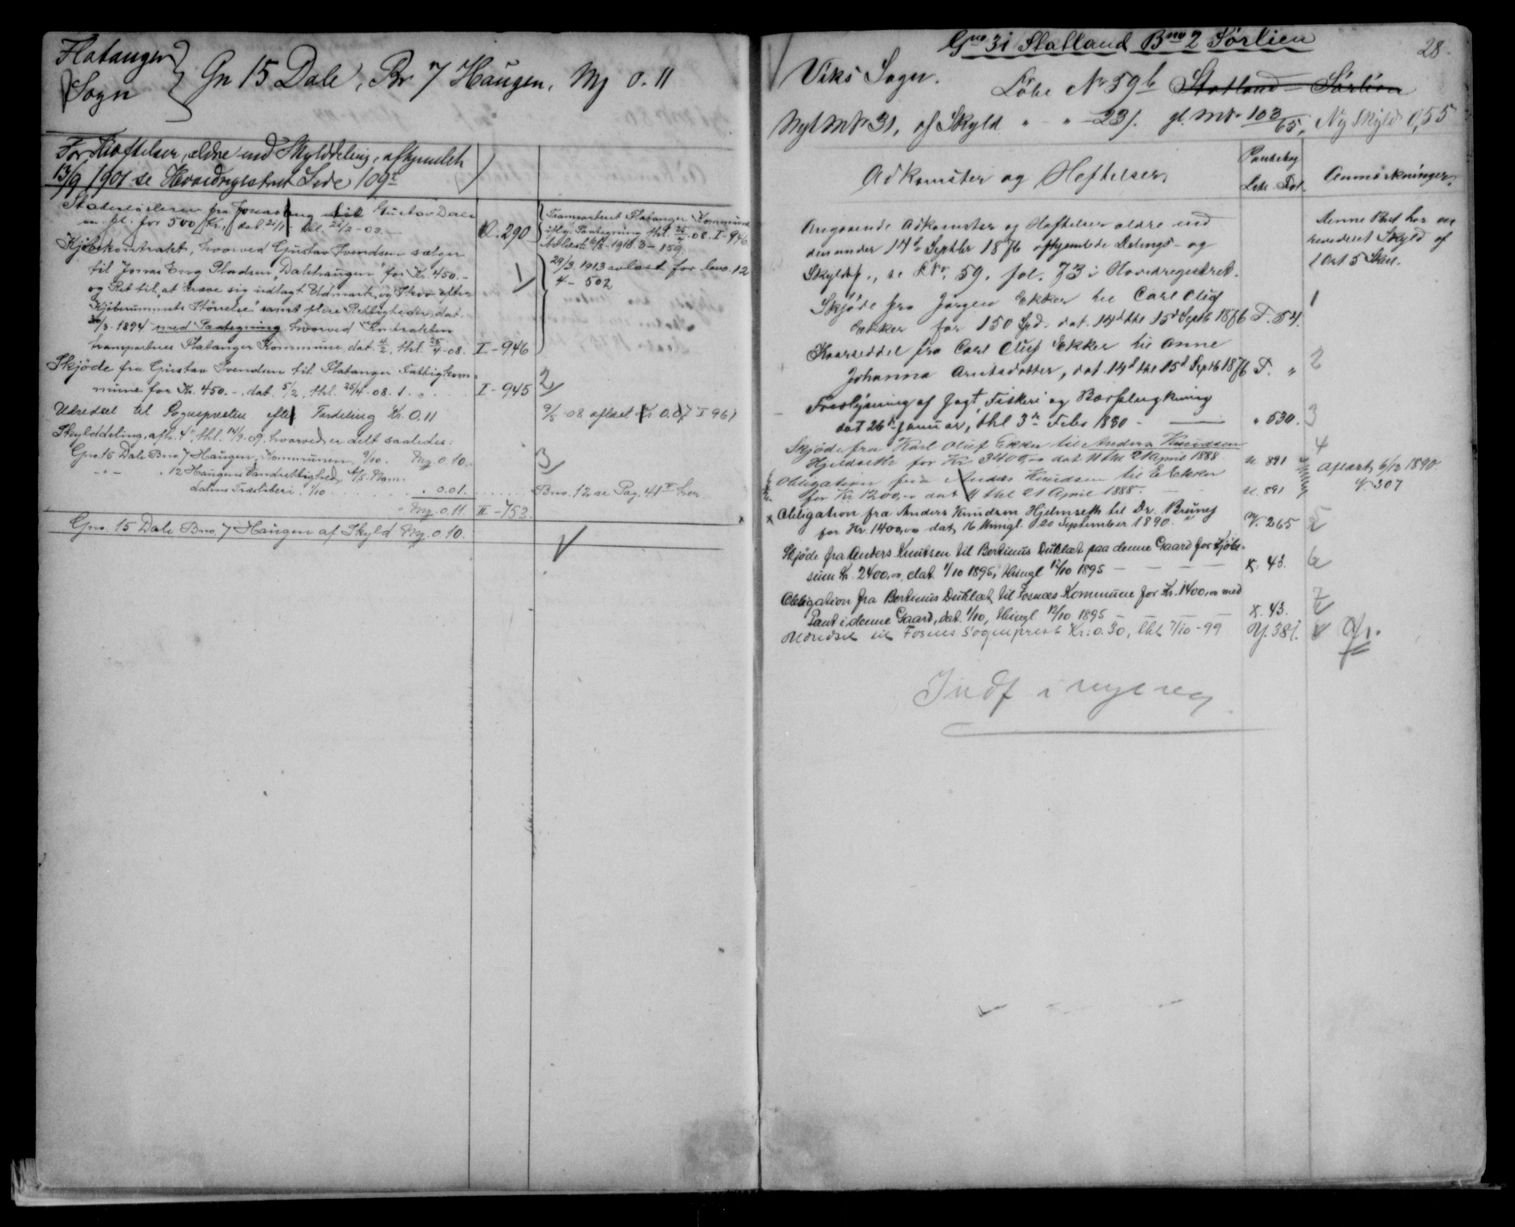 Flatanger
Sogn
Gn 15 Dale, Br 7 Haugen, Mj 0.11
For Hæftelser, ældre end Skylddeling, afhjemlet
13/9 1901 se Hovedregisteret Side 109
fra Jonas Eng til Gustav Dale
for 500 Kr, dat 21/1 thl. 21/2 - 03. VI. 290
Transporteret Flatanger Kommune
iflg. Paategning thl. 25/4 08. I - 946
Kjøbekontrakt, hvorved Gustav Svendsen sælger
til Jonas Eng Pladsen "Dalehaugen" for Kr. 450.-
og Ret til, at kræve sig udlagt Udmark og Skov efter
Kjøbesummens Størrelse samt flere Rettigheder, dat.
/3 1894 med Paategning hvorved Kontrakten
transporteres Flatanger Kommune, dat. 5/2, thl. 25/4 08. I - 946
1
29/3 1913 avløst for bno. 12
4 - 502
Skjøde fra Gustav Svendsen til Flatanger Fattigkom-
mune for Kr. 450.-, dat. 5/2, thl. 25/4 08. I - 945
2
Udredsel til Sognepresten efter Fordeling Kr. 0.11
9/5 08 afløst Kr 0.07 I 961
Skylddeling, afh. thl. 14/9 09, hvorved er delt saaledes:
Gno 15 Dale Bno 7 Haugen, Kommunen, 9/10. Mg 0.10.
" 12 Haugens Vandrettighed,
1/10 " 0.01.
Mg. 0.11 II - 753.
3
Bno. 12 se Pag. 41 her
Gno. 15 Dale Bno. 7 Haugen af Skyld Mg. 0.10.
28.
Gno 31 Statland Bno 2 Sørlien
Viks Sogn. Løbe No 59 b Statland Sørlien
Nyt MNo 31, af Skyld " - " - 23 /. gl. MNo 103/65, Ny Skyld 0,55
Adkomster og Heftelser.
Pantebog
Litr. Fol.
Anmærkninger.
Angaaende Adkomster og Heftelser ældre end
den under 14de Septbr 1876 afhjemlede Delings- og
Skyldsf., se LNr. 59. fol. 73 i Hovedregistret.
Denne Part har en
revideret Skyld af
1 Ort 5 Skill.
Skjøde fra Jørgen Ekker til Carl Oluf
Ekker for 150 Spd. dat. 14d thl 15d Septb 1876 T. 54.
1
Kaarseddel fra Carl Oluf Ekker til Anne
Johanna Arntsdatter, dat 14d thl 15d Septb 1876 T. "
2
Freslysning af Jagt Fiskeri og Bærplukning
dat 26 Januar, thl 3die Febr 1880 - " 530.
3
Skjøde fra Karl Oluf Ekker til Anders Knudsen
Hjelmseth for Kr 3400,00 dat 11 thl 21 April 1888 U. 891
4
Obligation fra Anders Knudsen til E Ekker
for Kr 1200,00 dat 11 thl 21 April 1888 - U. 891
Aflæst, 6/2 1890
V. 207
Obligation fra Anders Knudsen Hjelmseth til Dr. Brunes
for Kr. 1400,00 dat. 16 thingl 20 September 1890. V. 265
5
Skjøde fra Anders Knutsen til Bertinus Duklæt paa denne Gaard for Kjøbe-
sum Kr. 2400,00, dat. 1/10 1895, thingl 12/10 1895 - X. 43.
6
Obligation fra Bertinus Duklæt til Fosnæs Kommune for Kr. 1400,00 med
Pant i denne Gaard, dat. 1/10, thingl 12/10 1895 - X. 43.
7
Udredsel til Fosnes Sogneprest Kr: 0.30, thl 7/10 - 99 Y. 381.
Indf i nyt reg